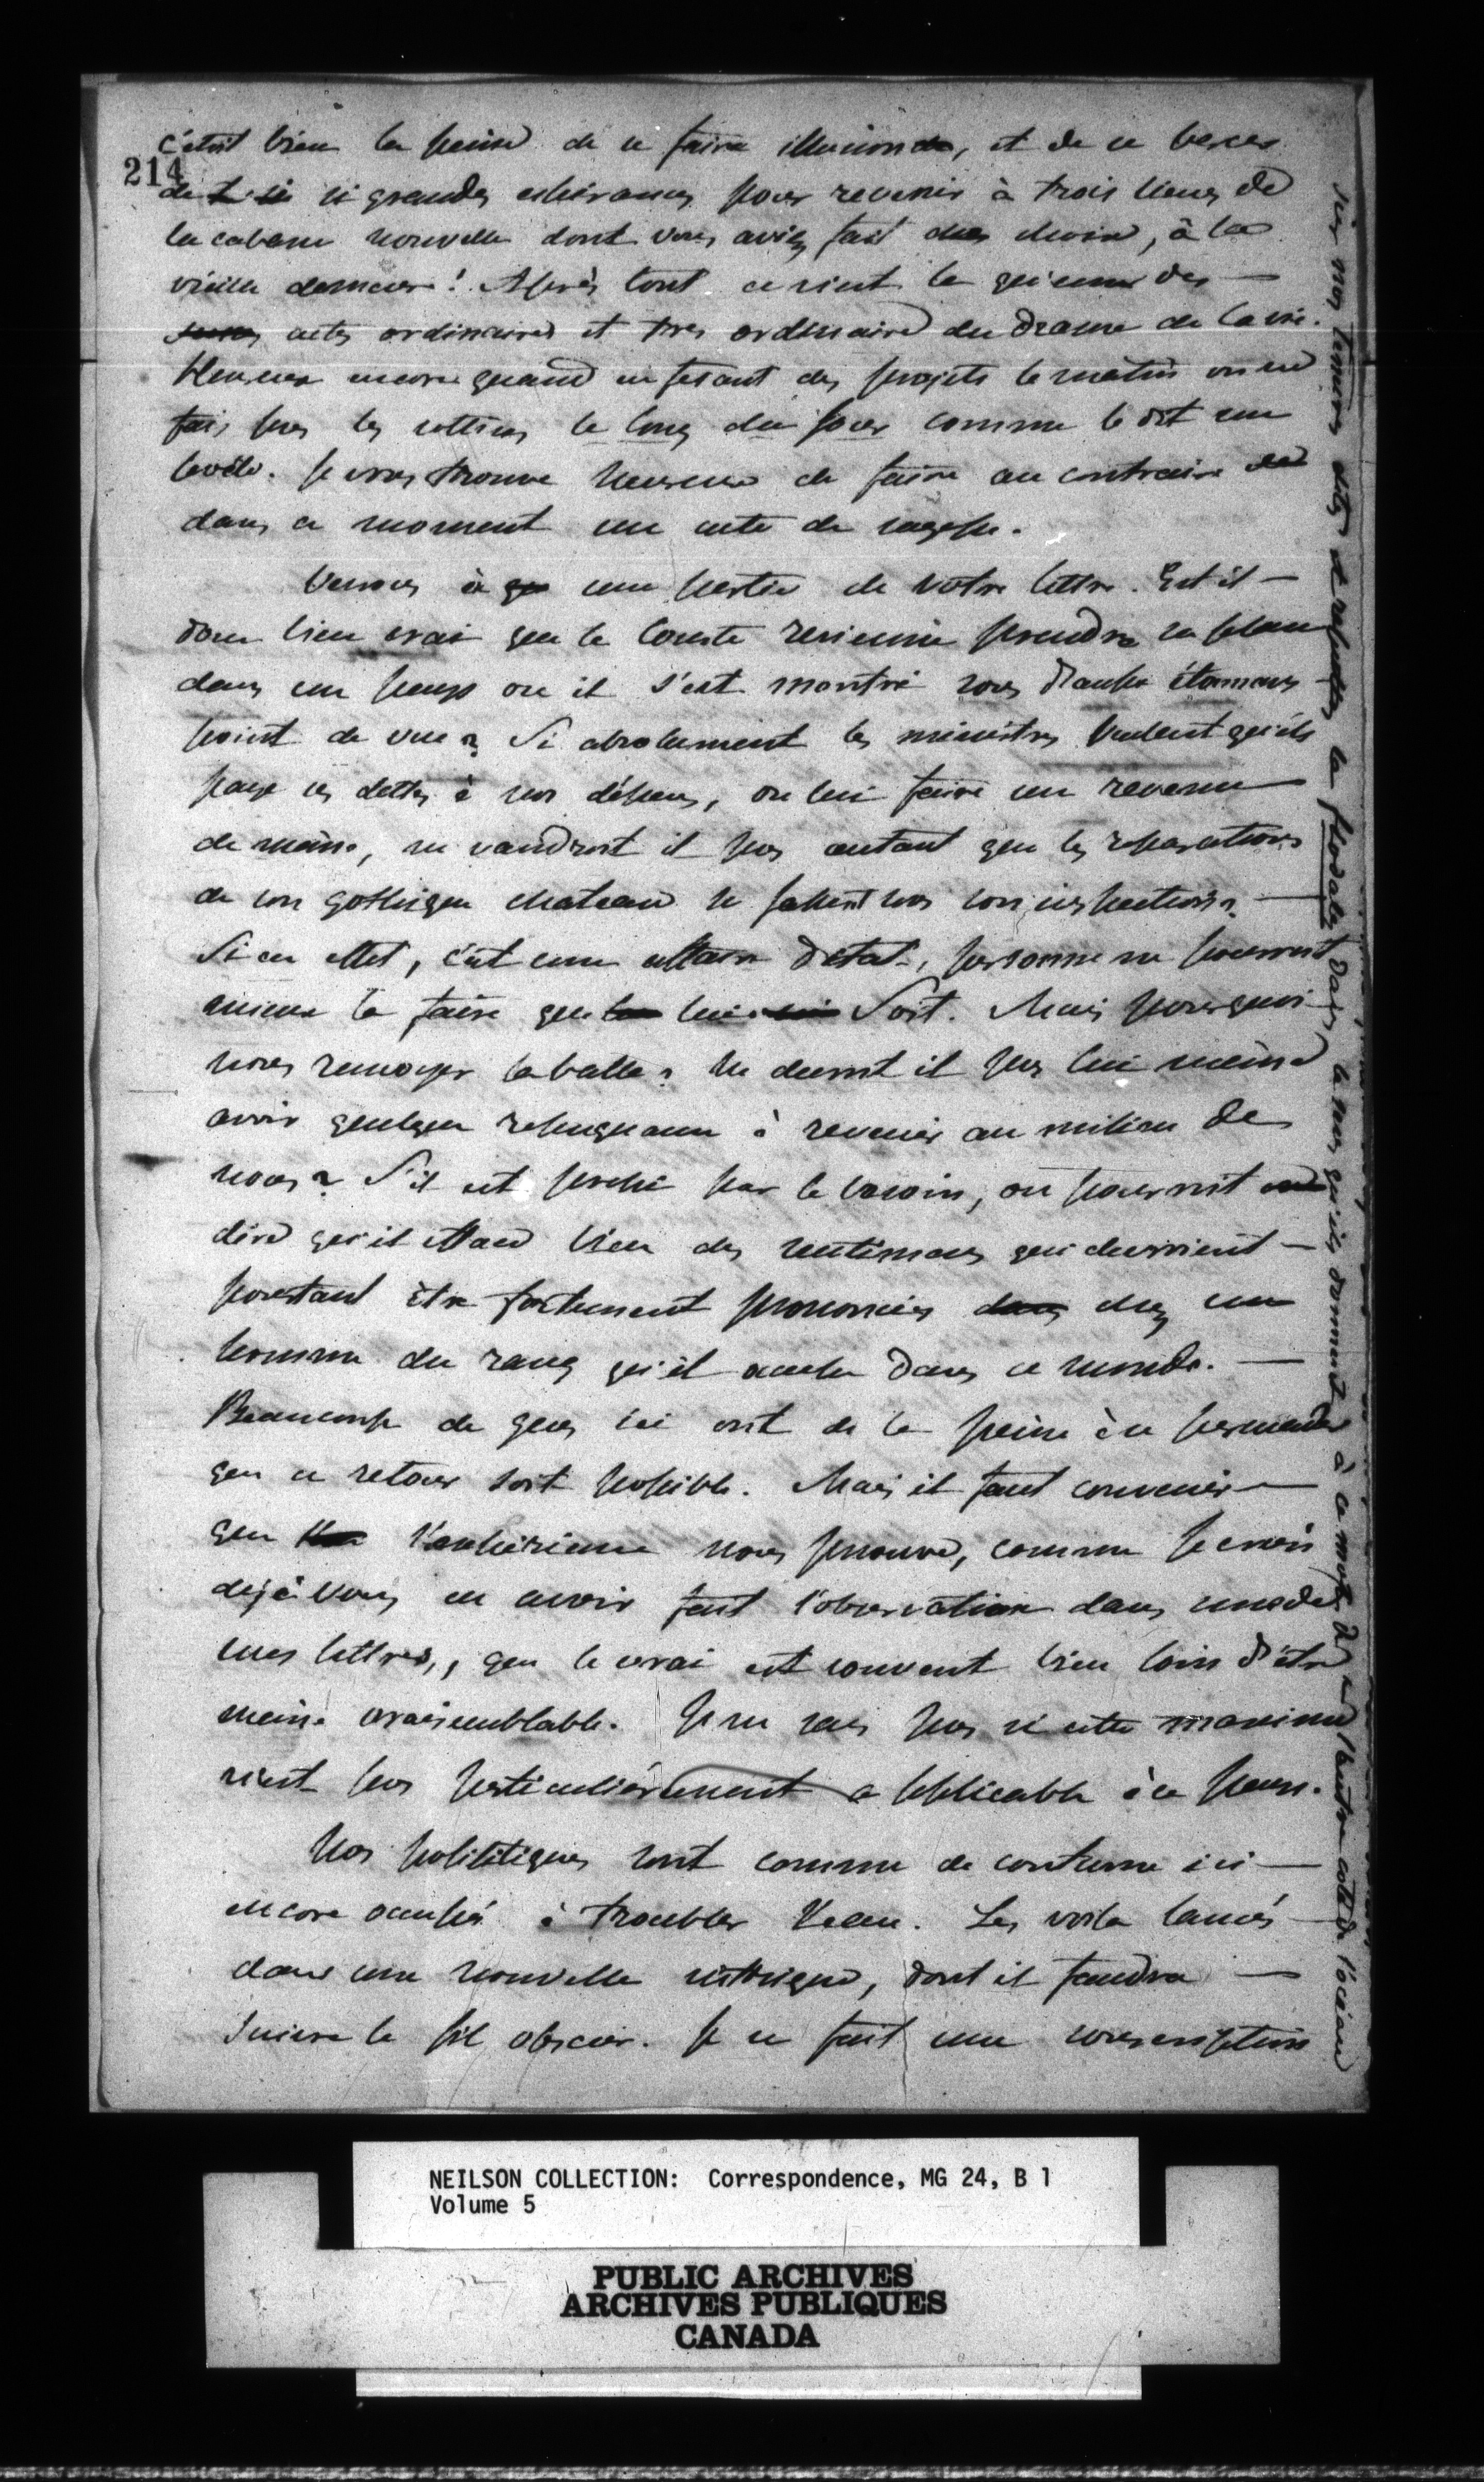 214
c'etoit bien la peine de se faire illusion, et de se bercer
de si grandes espérances pour revenir à trois lieues de
la cabane nouvelle dont vous aviez fait choix, à la
vieille demeure! Après tout ce n'est là qu'une des
actes ordinaires et tres ordinaire du drame de la vie.
Heureux encore quand en fesant des projets le matin on ne
fait pas les sottises le long du jour comme le dit un
poëte. Je vous trouve heureux de faire au contraire
dans ce moment un acte de sagesse.
Venons à une partie de votre lettre. Est il
donc bien vrai que le Comte revienne prendre sa place
dans un pays ou il s'est montré sous d'aussi étonnans
point de vue? Si absolument les ministres veulent qu'ils
paye ses dettes à nos dépens, ou lui faire un revenu
de même, ne vaudroit il pas autant que les réparations
de son gothique chateau se fassent sous son inspection?
Si en effet, c'est une affaire d'état, personne ne pourroit
mieux le faire que lui. Soit. Mais pourquoi
nous renvoyer la balle? Ne devroit il pas lui même
avoir quelque répugnance à revenir au milieu de
nous? S'il est pressé par le besoin, on pourroit
dire qu'il efface bien des sentimens qui devroient
pourtant être fortement prononcés chez un
homme du rang qu'il occupe dans ce monde.
Beaucoup de gens ici ont de la peine à se persuader
que ce retour soit possible. Mais il faut convenir
que l'expérience nous prouve, comme je crois
dejà vous en avoir fait l'observation dans une de
mes lettres, que le vrai est souvent bien loin d'être
même vraisemblable. Je ne sais pas si cette maxime
n'est pas particulièrement applicable à ce pays.
Nos politiques sont comme de coutume ici
encore occupés à troubler l'eau. Les voila lancés
dans une nouvelle intrigue, dont il faudra
suivre le fil obscur. Il se fait une souscription
sur nos tenures dites et réputées la féodales dans le sens qu'ils donnent à ce mot de l'autre coté de l'océan
NEILSON COLLECTION: Correspondence, MG 24, B 1
Volume 5
PUBLIC ARCHIVES
ARCHIVES PUBLIQUES
CANADA